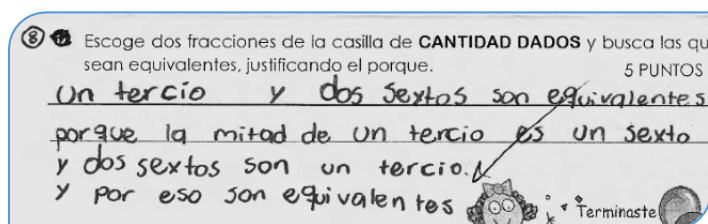 8 Escoge dos fracciones de la casilla de CANTIDAD DADOS y busca las qu
sean equivalentes, justificando el porque.
5 PUNTOS
Un tercio y dos sextos son equivalentes
porque la mitad de un tercio es un sexto
y dos sextos son un tercio.
y por eso son equivalentes
Terminaste